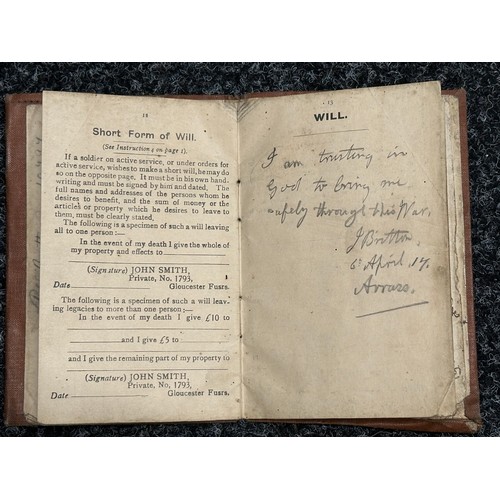 12
Short Form of Will.
(See Instruction 4 on page 1).
If a soldier on active service, or under orders for
active service, wishes to make a short will, he may do
so on the opposite page. It must be in his own hand-
writing and must be signed by him and dated. The
full names and addresses of the persons whom he
desires to benefit, and the sum of money or the
articles or property which he desires to leave to
them, must be clearly stated.
The following is a specimen of such a will leaving
all to one person:—
In the event of my death I give the whole of
my property and effects to
(Signature) JOHN SMITH,
Private, No. 1793,
Date Gloucester Fusrs.
The following is a specimen of such a will leav-
ing legacies to more than one person:—
In the event of my death I give £10 to
and I give £5 to
and I give the remaining part of my property to
(Signature) JOHN SMITH,
Private, No. 1793,
Date Gloucester Fusrs.
13
WILL.
I am trusting in
God to bring me
safely through this War.
J Britton
6 April 17.
Arras.